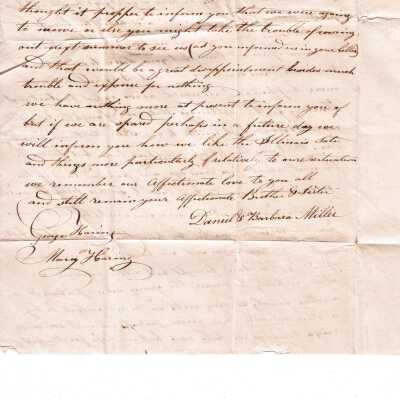 thought it propper to inform you that we were going
to moove or else you might take the trouble of coming
out next summer to see us (as you informed us in your letter)
and that would be a great disappointment besides much
trouble and expense for nothing
we have nothing more at present to inform you of
but if we are spared perhaps in a future day we
will inform you how we like the Illinois State
and things more particularly relative to our situation
we remember our affectionate love to you all
and still remain your affectionate Brother & Sister
Daniel & Barbara Miller
George Haring
Mary Haring